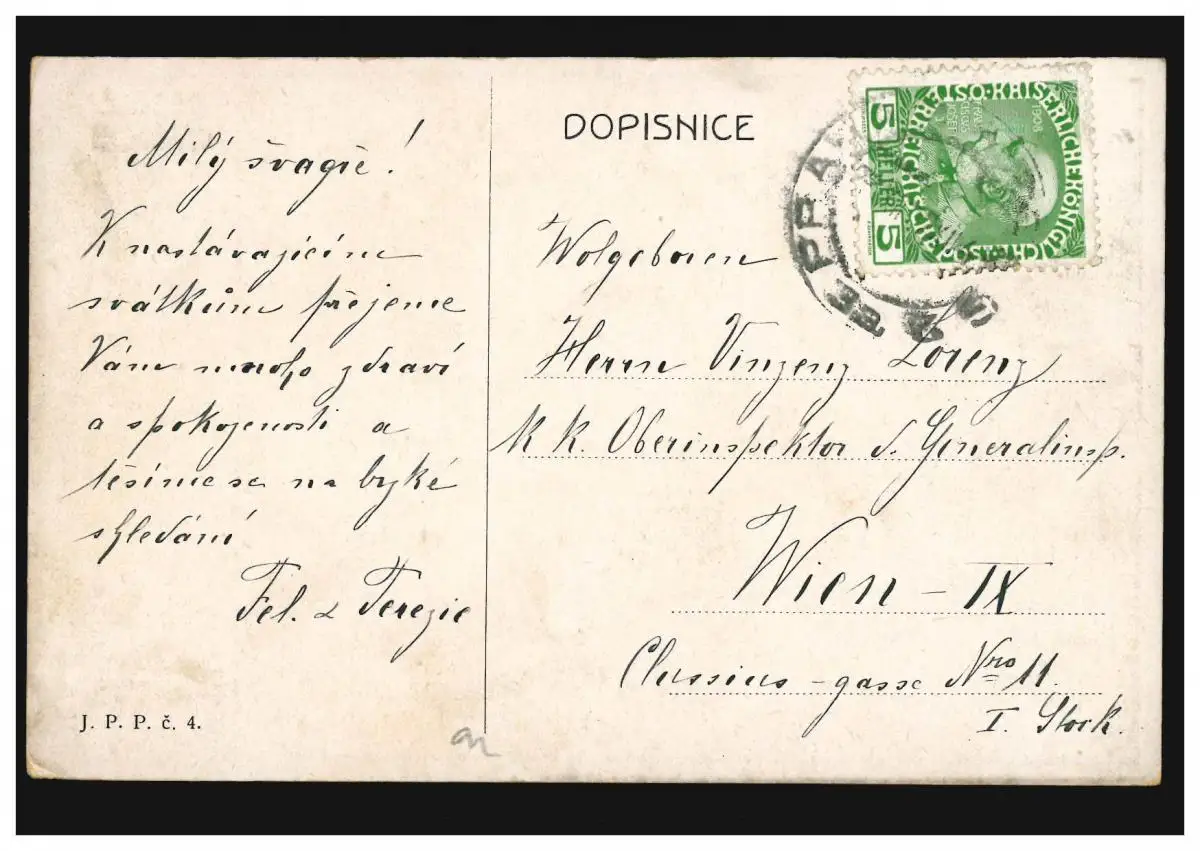 Milý švagře!
K nastávajícím
svátkům přejeme
Vám mnoho zdraví
a spokojenosti a
těšíme se na brzké
shledání
Fel. a Terezie
J. P. P. č. 4.
DOPISNICE
5 HELLER 5
KAISERLICHEKÖNIGLICH
ÖSTERREICHISCHE
1908
PRA
Wolgeboren
Herrn Vinzenz Lorenz
K K. Oberinspektor d. Generalinsp.
Wien - IX
Clussius-gasse Nro 11.
I. Stock.